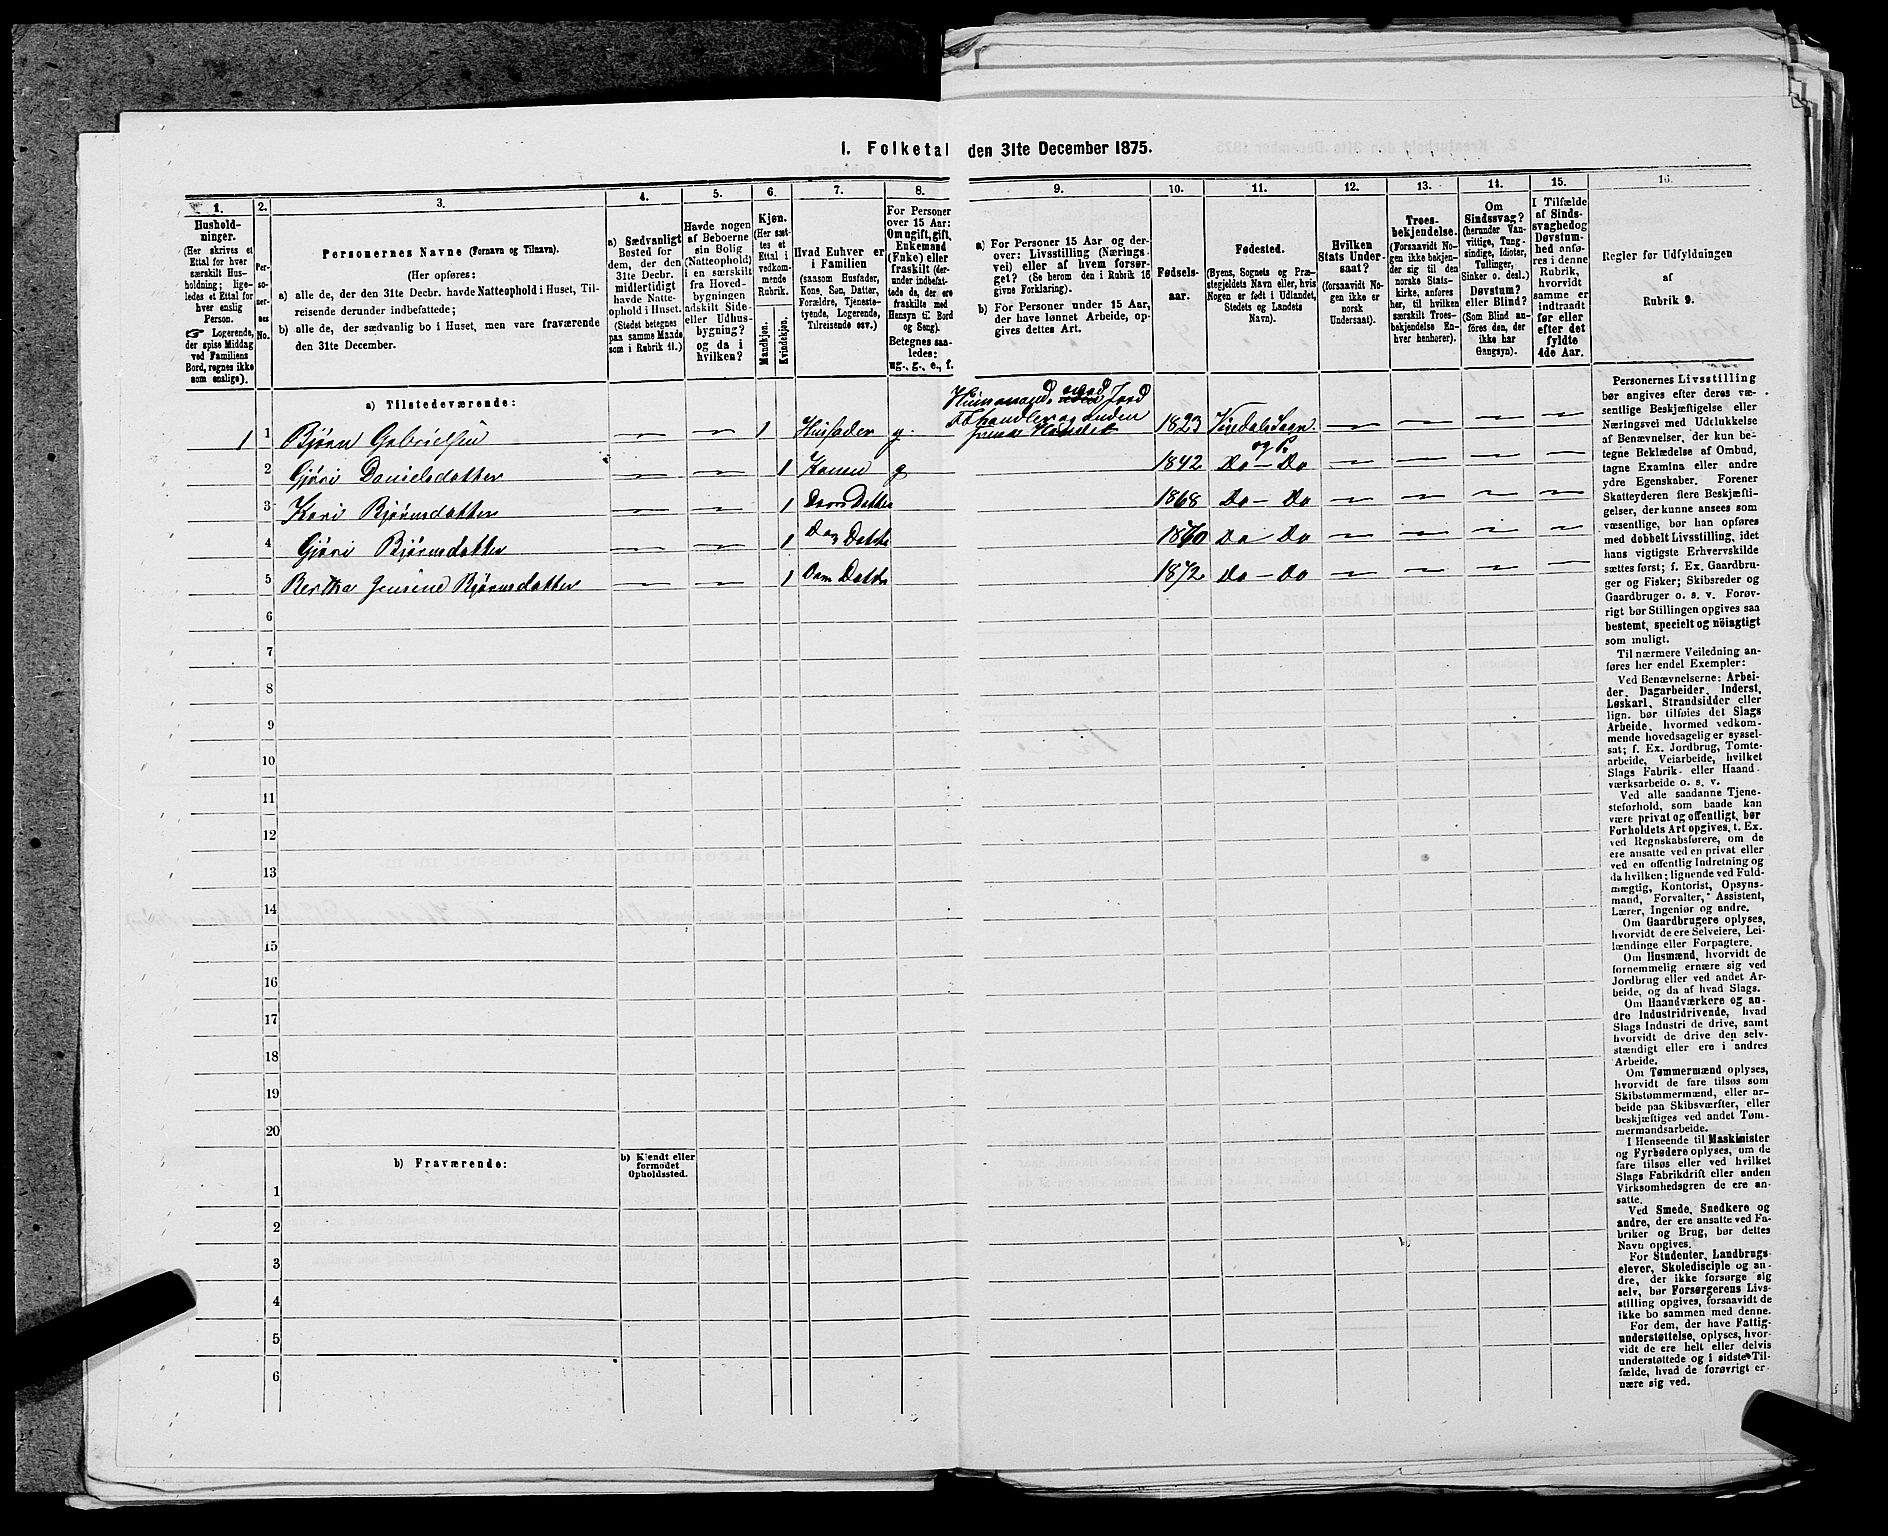 1. Folketal den 31te December 1875.
1.
2.
3.
4.
5.
6.
7.
8.
9.
10.
11.
12.
13.
14.
15.
16.
Hushold-
ninger.
(Her skrives et
Ettal for hver
særskilt Hus-
holdning; lige-
ledes et Ettal for
hver enslig
Person.
☞ Logerende,
der spise Middag
ved Familiens
Bord, regnes ikke
som enslige).
Per-
so-
ner-
nes
No.
Personernes Navne (Fornavn og Tilnavn).
(Her opføres:
a) alle de, der den 31te Decbr. havde Natteophold i Huset, Til-
reisende derunder indbefattede;
b) alle de, der sædvanlig bo i Huset, men vare fraværende
den 31te December.
a) Sædvanligt
Bosted for
dem, der den
31te Decbr.
midlertidigt
havde Natte-
ophold i Huset.
(Stedet betegnes
paa samme Maade
som i Rubrik 11.)
Havde nogen
af Beboerne
sin Bolig
(Natteophold)
i en særskilt
fra Hoved-
bygningen
adskilt Side-
eller Udhus-
bygning?
og da i
hvilken?
Kjøn.
(Her sæt-
tes et
Ettal i
vedkom-
mende
Rubrik.
Mandkjøn.
Kvindekjøn.
Hvad Enhver er
i Familien
(saasom Husfader,
Kone, Søn, Datter,
Forældre, Tjeneste-
tyende, Logerende,
Tilreisende osv.)
For Personer
over 15 Aar:
Om ugift, gift,
Enkemand
(Enke) eller
fraskilt (der-
under indbefat-
tede de, der ere
fraskilte med
Hensyn til Bord
og Seng).
Betegnes saa-
ledes:
ug., g., e., f.
a) For Personer 15 Aar og der-
over: Livsstilling (Nærings-
vei) eller af hvem forsør-
get? (Se herom den i Rubrik 16
givne Forklaring).
b) For Personer under 15 Aar,
der have lønnet Arbeide, op-
gives dettes Art.
Fødsels-
aar.
Fødested.
(Byens, Sognets og Præ-
stegjeldets Navn eller, hvis
Nogen er født i Udlandet,
Stedets og Landets
Navn).
Hvilken
Stats Under-
saat?
(forsaavidt No-
gen ikke er
norsk
Undersaat).
Troes-
bekjendelse.
(Forsaavidt No-
gen ikke bekjen-
der sig til den
norske Stats-
kirke, anføres
her, til hvilken
særskilt Troes-
bekjendelse En-
hver henhører).
Om
Sindssvag?
(herunder Van-
vittige, Tung-
sindige, Idioter,
Tullinger,
Sinker o. desl.)
Døvstum?
eller Blind?
(Som Blind an-
føres den, der
ikke har
Gangsyn).
I Tilfælde
af Sinds-
svaghed og
Døvstum-
hed anfø-
res i denne
Rubrik,
hvorvidt
samme er
indtraadt
før eller
efter det
fyldte
4de Aar.
Regler før Udfyldningen
af
Rubrik 9.
a) Tilstedeværende:
1 1 Bjørn Gabrielsen 1 Husfader g. 1823
2 Gjøri Danielsdatter 1 Konen g 1842 Do — Do
3 Kari Bjørnsdatter 1 Datter 1868 Do — Do
4 Gjøri Bjørnsdatter 1 1870 Do Do
5 Bertha Jensine Bjørnsdatter 1 1872 Do — Do
6
7
8
9
10
11
12
13
14
15
16
17
18
19
20
b) Fraværende:
b) Kjendt eller
formodet
Opholdssted.
1
2
3
4
5
6
Personernes Livsstilling
bør angives efter deres væ-
sentlige Beskjæftigelse eller
Næringsvei med Udelukkelse
af Benævnelser, der kun be-
tegne Beklædelse af Ombud,
tagne Examina eller andre
ydre Egenskaber. Forener
Skatteyderen flere Beskjæfti-
gelser, der kunne ansees som
væsentlige, bør han opføres
med dobbelt Livsstilling, idet
hans vigtigste Erhvervskilde
sættes først; f. Ex. Gaardbru-
ger og Fisker; Skibsreder og
Gaardbruger o. s. v. Forøv-
rigt bør Stillingen opgives saa
bestemt, specielt og nøiagtigt
som muligt.
Til nærmere Veiledning an-
føres her endel Exempler:
Ved Benævnelserne: Arbei-
der, Dagarbeider, Inderst,
Løskarl, Strandsidder eller
lign. bør tilføies det Slags
Arbeide, hvormed vedkom-
mende hovedsagelig er syssel-
sat; f. Ex. Jordbrug, Tomte-
arbeide, Veiarbeide, hvilket
Slags Fabrik- eller Haand-
værksarbeide o. s. v.
Ved alle saadanne Tjene-
steforhold, som baade kan
være privat og offentligt, bør
Forholdets Art opgives, t. Ex.
ved Regnskabsførere, om de
ere ansatte ved en privat eller
ved en offentlig Indretning og
da hvilken; lignende ved Fuld-
mægtig, Kontorist, Opsyns-
mand, Forvalter, Assistent,
Lærer, Ingeniør og andre.
Om Gaardbrugere oplyses,
hvorvidt de ere Selveiere, Lei-
lændinge eller Forpagtere.
Om Husmænd, hvorvidt de
fornemmelig ernære sig ved
Jordbrug eller ved andet Ar-
beide, og da af hvad Slags.
Om Haandværkere og an-
dre Industridrivende, hvad
Slags Industri de drive, samt
hvorvidt de drive den selv-
stændigt eller ere i andres
Arbeide.
Om Tømmermænd oplyses,
hvorvidt de fare tilsøs som
Skibstømmermænd, eller ar-
beide paa Skibsværfter, eller
beskjæftiges ved andet Tøm-
mermandsarbeide.
I Henseende til Maskinister
og Fyrbødere oplyses, om de
fare tilsøs eller ved hvilket
Slags Fabrikdrift eller anden
Virksomhedsgren de ere an-
satte.
Ved Smede, Snedkere og
andre, der ere ansatte ved Fa-
briker og Brug, bør dettes
Navn opgives.
For Studenter, Landbrugs-
elever, Skoledisciple og an-
dre, der ikke forsørge sig
selv, bør Forsørgerens Livs-
stilling opgives, forsaavidt de
ikke bo sammen med denne.
For dem, der have Fattig-
understøttelse, oplyses, hvor-
vidt de ere helt eller delvis
understøttede og i sidste Til-
fælde, hvad de forøvrigt er-
nære sig ved.